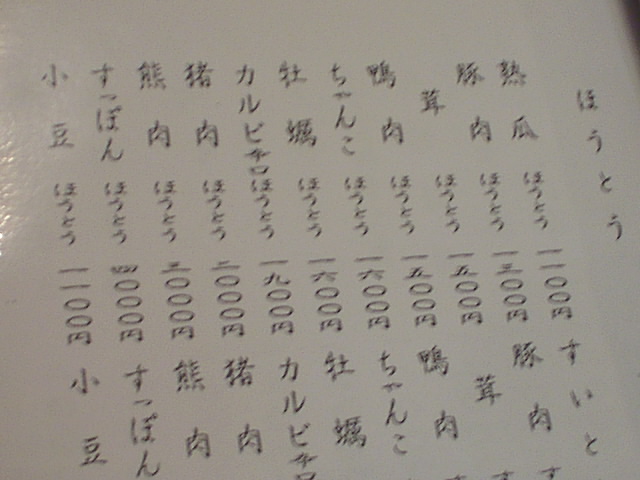 ほうとう
熟瓜ほうとう一一〇〇円
豚肉ほうとう一三〇〇円
茸ほうとう一五〇〇円
鴨肉ほうとう一五〇〇円
ちゃんこほうとう一六〇〇円
牡蠣ほうとう一六〇〇円
カルビほうとう一九〇〇円
猪肉ほうとう二〇〇〇円
熊肉ほうとう三〇〇〇円
すっぽんほうとう四〇〇〇円
小豆ほうとう一一〇〇円
すいと
豚肉す
茸す
鴨肉す
ちゃんこ
牡蠣
カルビ
猪肉
熊肉
すっぽん
小豆